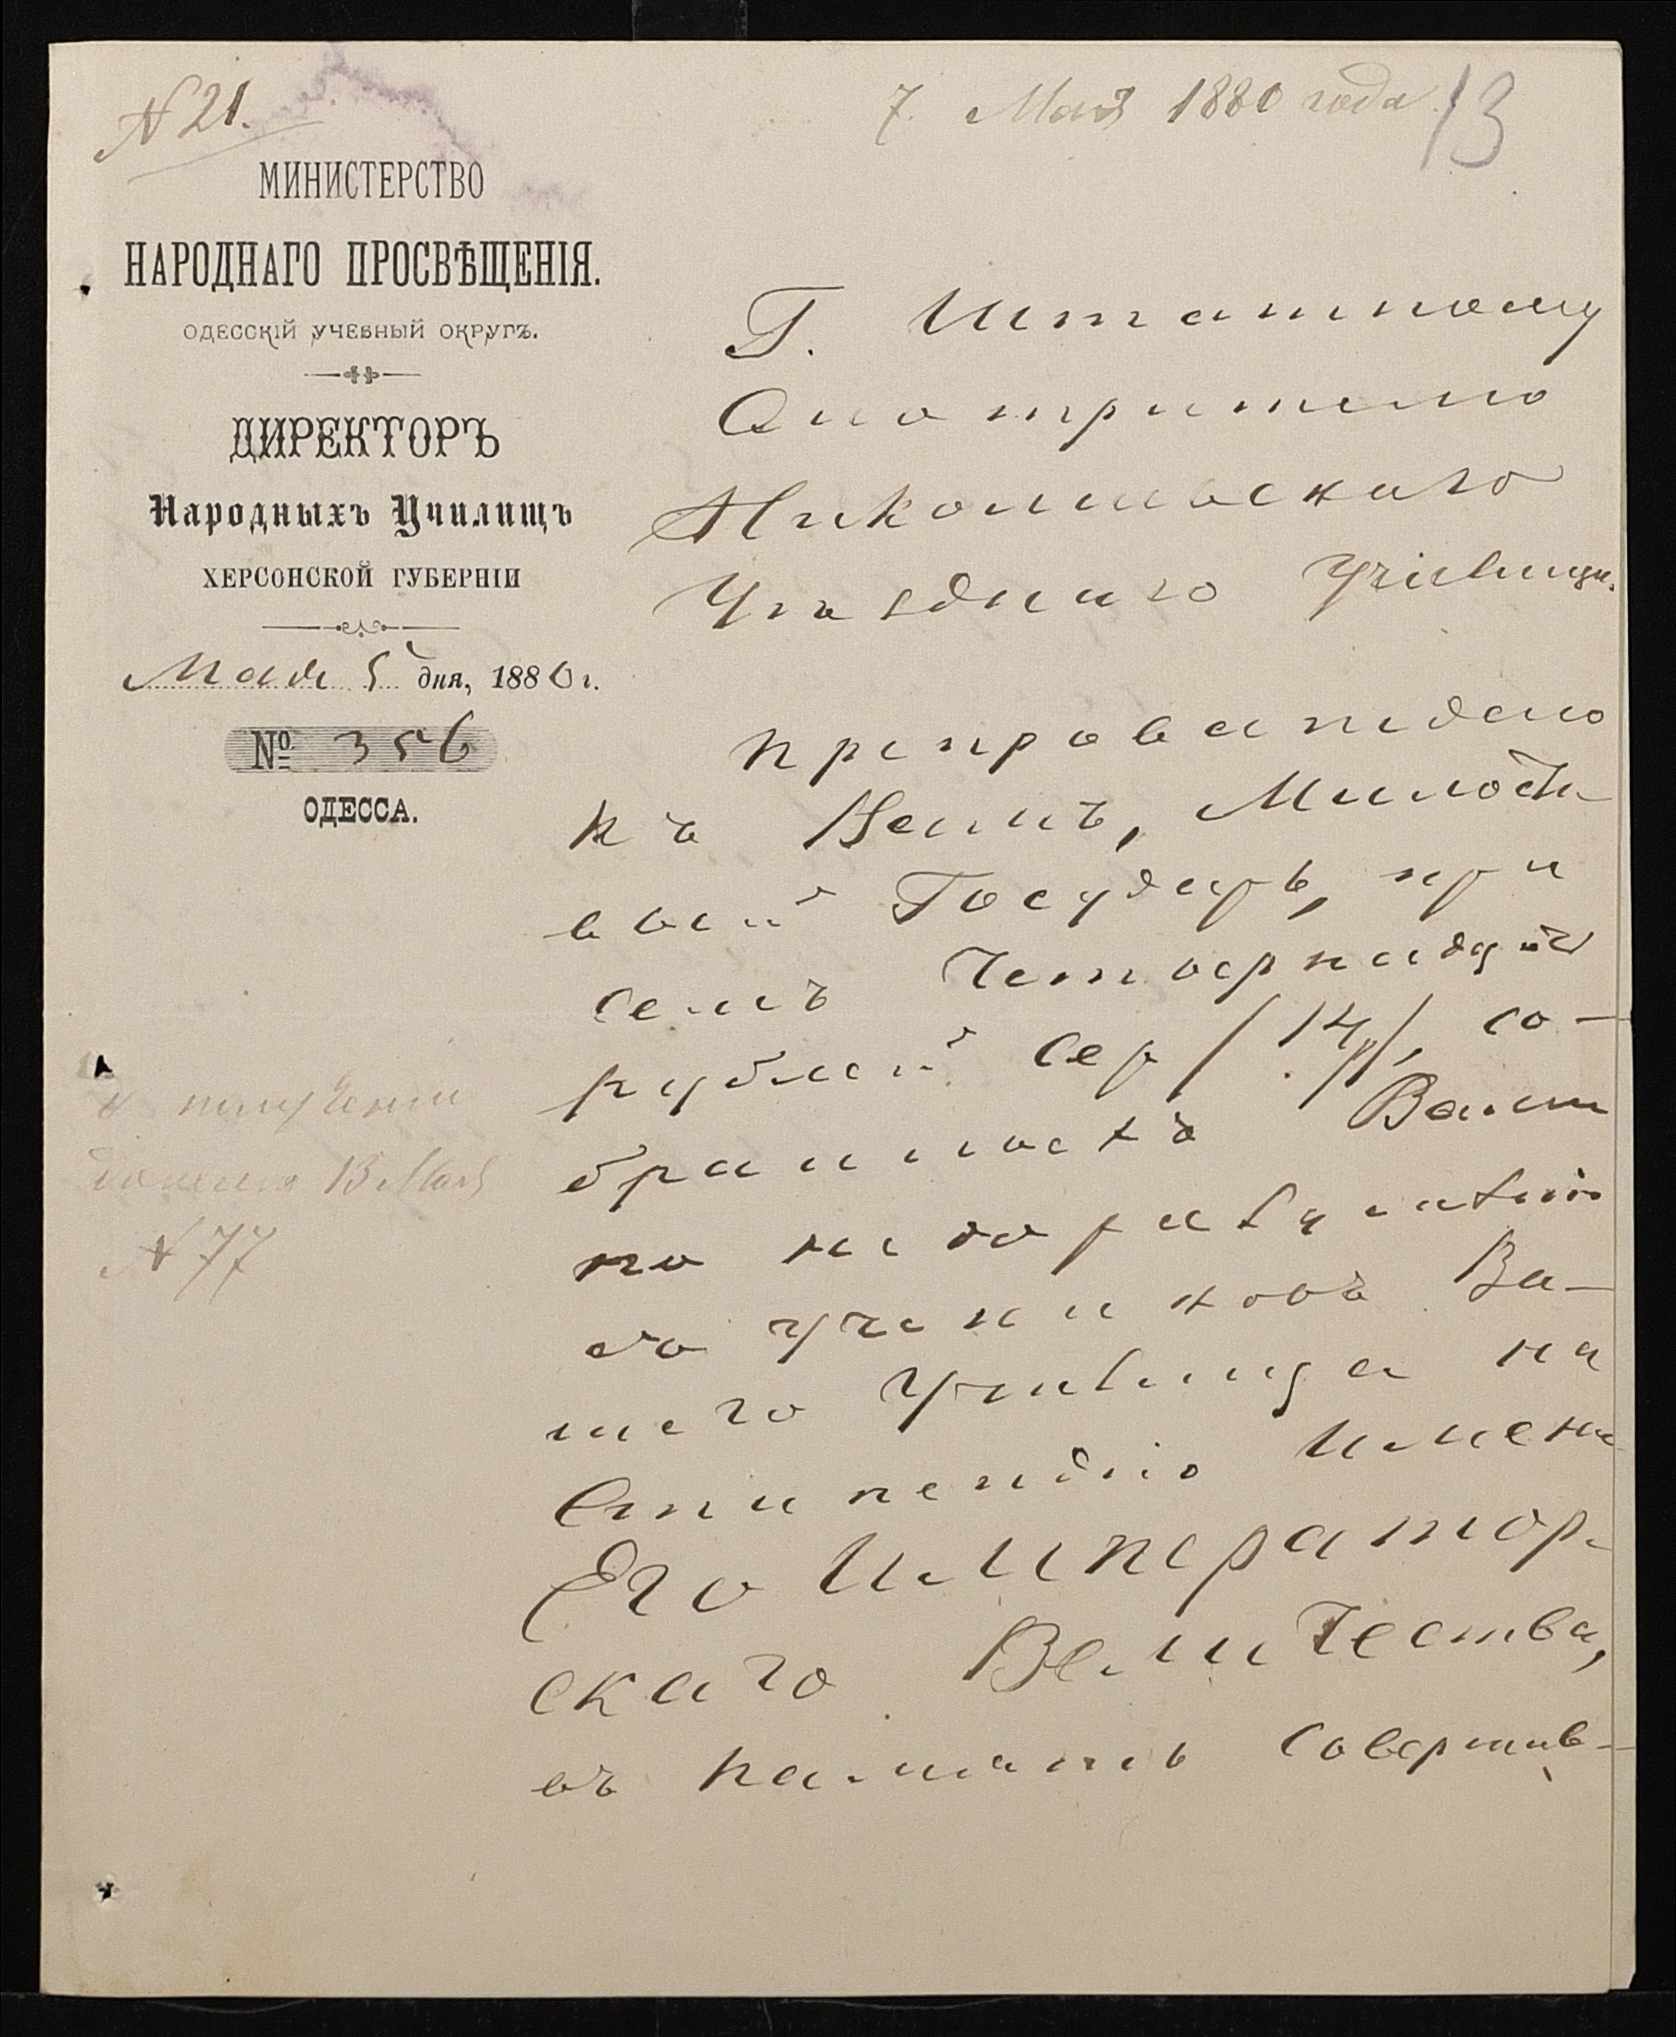 N 21.
7. Мая 1880 года
13
МИНИСТЕРСТВО
НАРОДНАГО ПРОСВѢЩЕНІЯ.
ОДЕССКІЙ УЧЕБНЫЙ ОКРУГЪ.
ДИРЕКТОРЪ
Народныхъ Училищъ
ХЕРСОНСКОЙ ГУБЕРНІИ
Мая 5 дня, 1880 г.
№ 356
ОДЕССА.
Г. Штатному
Смотрителю
Никольскаго
Уѣзднаго Училища.
Препровождаю
къ Вамъ, Милости-
вый Государь, при
семъ Четырнадцать
рублей Сер /14 р/, со-
бранныхъ Вами
по
до учениковъ Ва-
шего Училища на
Стипендію Имени
Его Император-
скаго Величества,
въ память Совершив-
о получении
донесено 13 Мая
N 77